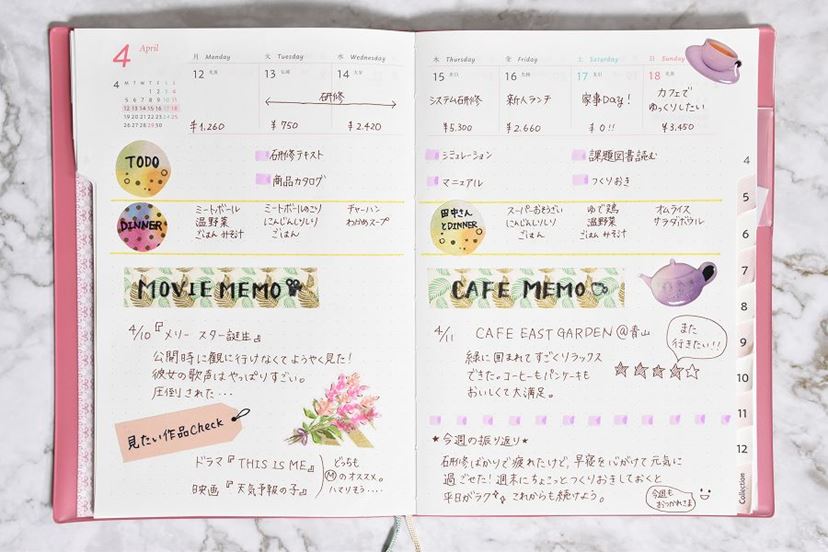 4 April
月 Monday
火 Tuesday
水 Wednesday
12 先負
13 仏滅
14 大安
研修
¥1,260
¥750
¥2,420
4
M T W T F S S
1 2 3 4
5 6 7 8 9 10 11
12 13 14 15 16 17 18
19 20 21 22 23 24 25
26 27 28 29 30
TODO
研修テキスト
商品カタログ
DINNER
ミートボール
温野菜
ごはん みそ汁
ミートボールのこり
にんじんしりしり
ごはん
チャーハン
わかめスープ
MOVIE MEMO
4/10『メリー スター誕生』
公開時に観に行けなくてようやく見た!
彼女の歌声はやっぱりすごい。
圧倒された…
見たい作品Check
ドラマ『THIS IS ME』
映画『天気予報の子』
どっちも
Ⓜのオススメ。
ハマりそう…
木 Thursday
金 Friday
土 Saturday
日 Sunday
15
16
17
18
システム研修
新人ランチ
家事Day!
カフェで
ゆっくりしたい
¥5,300
¥2,660
¥0!!
¥3,450
シミュレーション
マニュアル
課題図書読む
つくりおき
田中さん
とDINNER
スーパーおそうざい
にんじんしりしり
ごはん
ゆで鶏
温野菜
ごはん みそ汁
オムライス
サラダボウル
CAFE MEMO
4/11 CAFE EAST GARDEN@青山
緑に囲まれてすごくリラックス
できた。コーヒーもパンケーキも
おいしくて大満足。
また
行きたい!!
★今週の振り返り★
研修ばかりで疲れたけど、早寝を心がけて元気に
過ごせた!週末にちょこっとつくりおきしておくと
平日がラク これからも続けよう。
今週も
おつかれさま
4
5
6
7
8
9
10
11
12
Collection